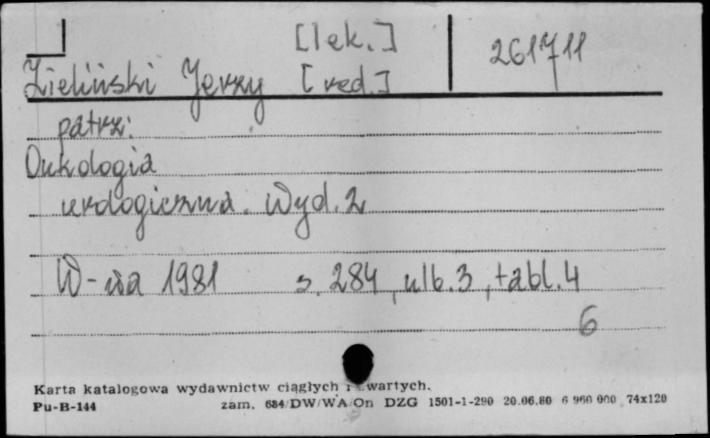 [lek.]
261711
Zieliński Jerzy [red.]
patrz:
Onkologia
urologiczna. Wyd. 2
W-wa 1981 s. 284, nlb. 3, tabl. 4
6
Karta katalogowa wydawnictw ciągłych i zwartych.
Pu-B-144 zam. 684/DW/WA/On DZG 1501-1-290 20.06.80 6 960 000 74x120